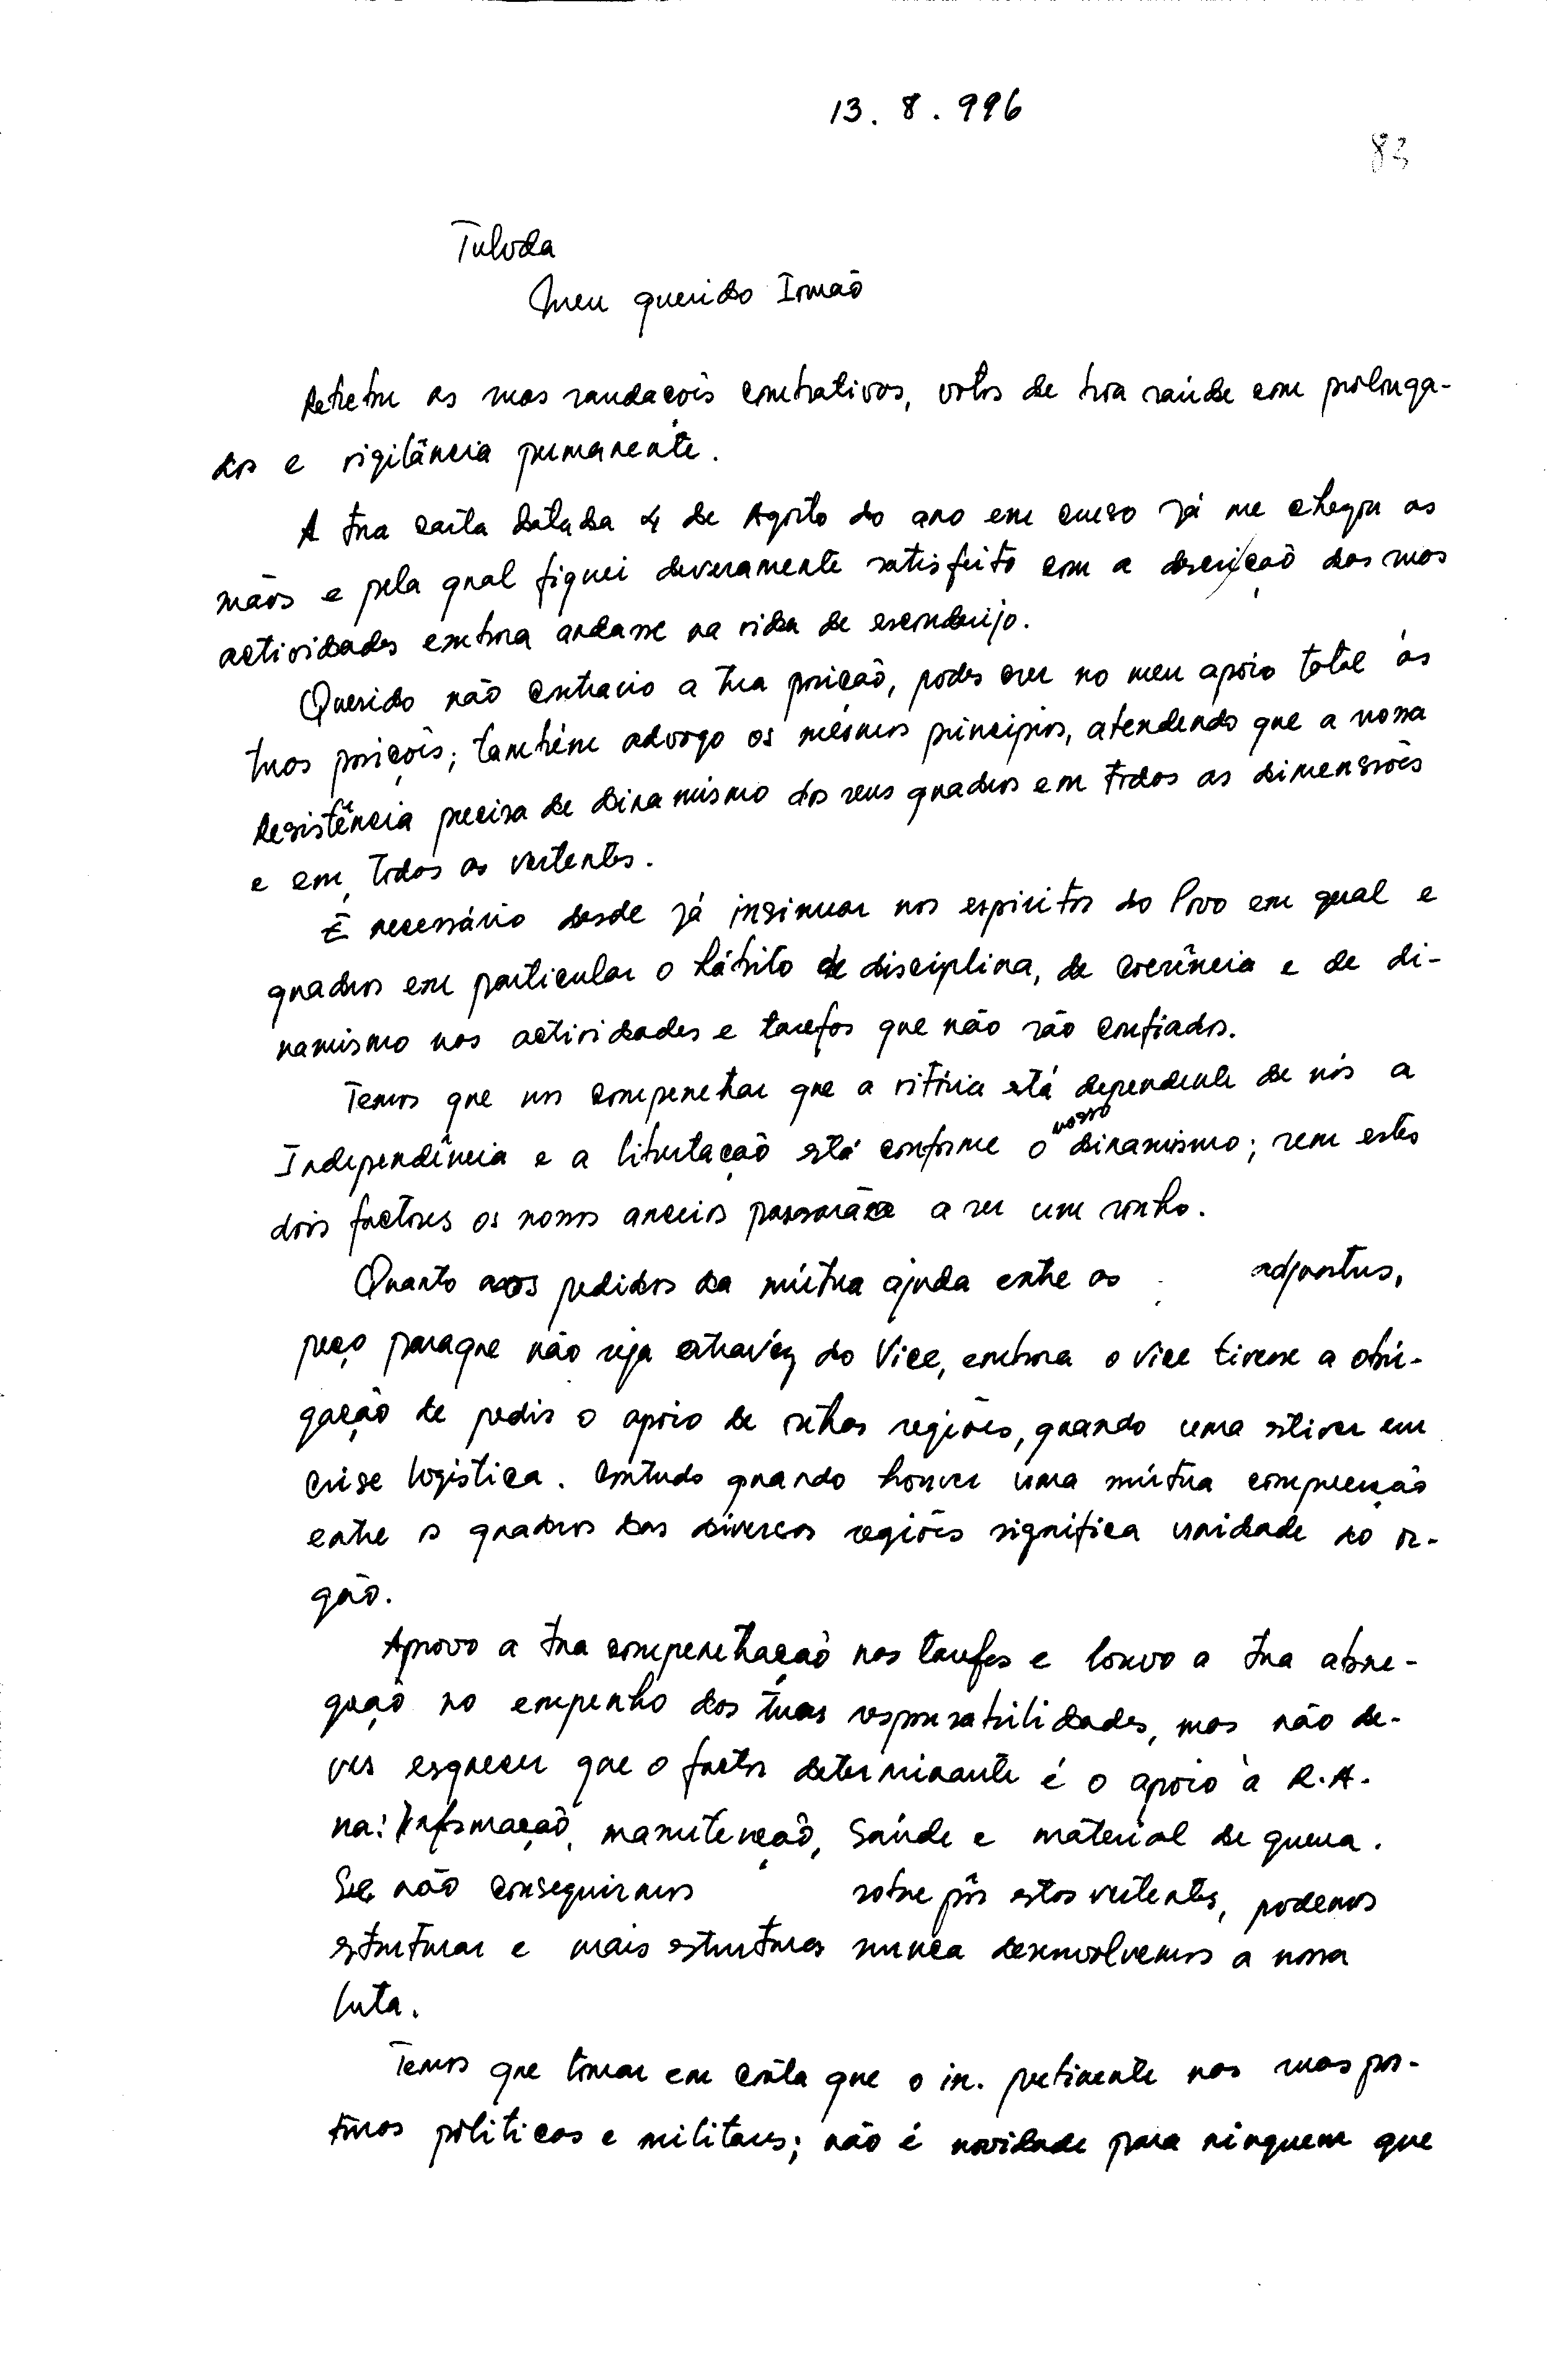 13. 8. 996
83
Tuloda
Meu querido Irmão
as suas saudações combativas, votos de boa saúde com prolonga-
dos e vigilância permanente.
A tua carta datada 4 de Agosto do ano em curso já me chegou as
mãos e pela qual fiquei deveramente satisfeito com a descrição das suas
actividades embora andasse na vida de esconderijo.
Querido não contrario a tua posição, podes crer no meu apoio total às
tuas posições; também advogo os mesmos principios, atendendo que a nossa
Resistência precisa de dinamismo dos seus quadros em todas as dimensões
e em todas as vertentes.
É necessário desde já insinuar nos espiritos do Povo em geral e
quadros em particular o hábito de disciplina, de coerência e de di-
namismo nas actividades e tarefas que não são confiados.
Temos que nos compenetrar que a vitória está dependente de nós a
Independência e a libertação está conforme o nosso dinamismo; sem estes
dois factores os nossos anceios passarão a ser um sonho.
Quanto aos pedidos da mútua ajuda entre os adjuntus,
peço paraque não seja através do Vice, embora o vice tivesse a obri-
gação de pedir o apoio de outras regiões, quando uma estiver em
crise logística. Contudo quando houver uma mútua compreenção
entre os quadros das diversas regiões significa unidade no or-
gão.
Aprovo a tua compenetração nas tarefas e louvo a tua abne-
gação no empenho das tuas responsabilidades, mas não de-
ves esquecer que o factor determinante é o apoio à R.A.
na: Informação, manutenção, Saúde e material de guerra.
Se não conseguirmos sobre pôr estas vertentes, podemos
estruturar e mais estruturas nunca desenvolvemos a nossa
luta.
Temos que tomar em conta que o in. pertinente nas suas pos-
turas políticas e militares; não é novidade para ninguem que